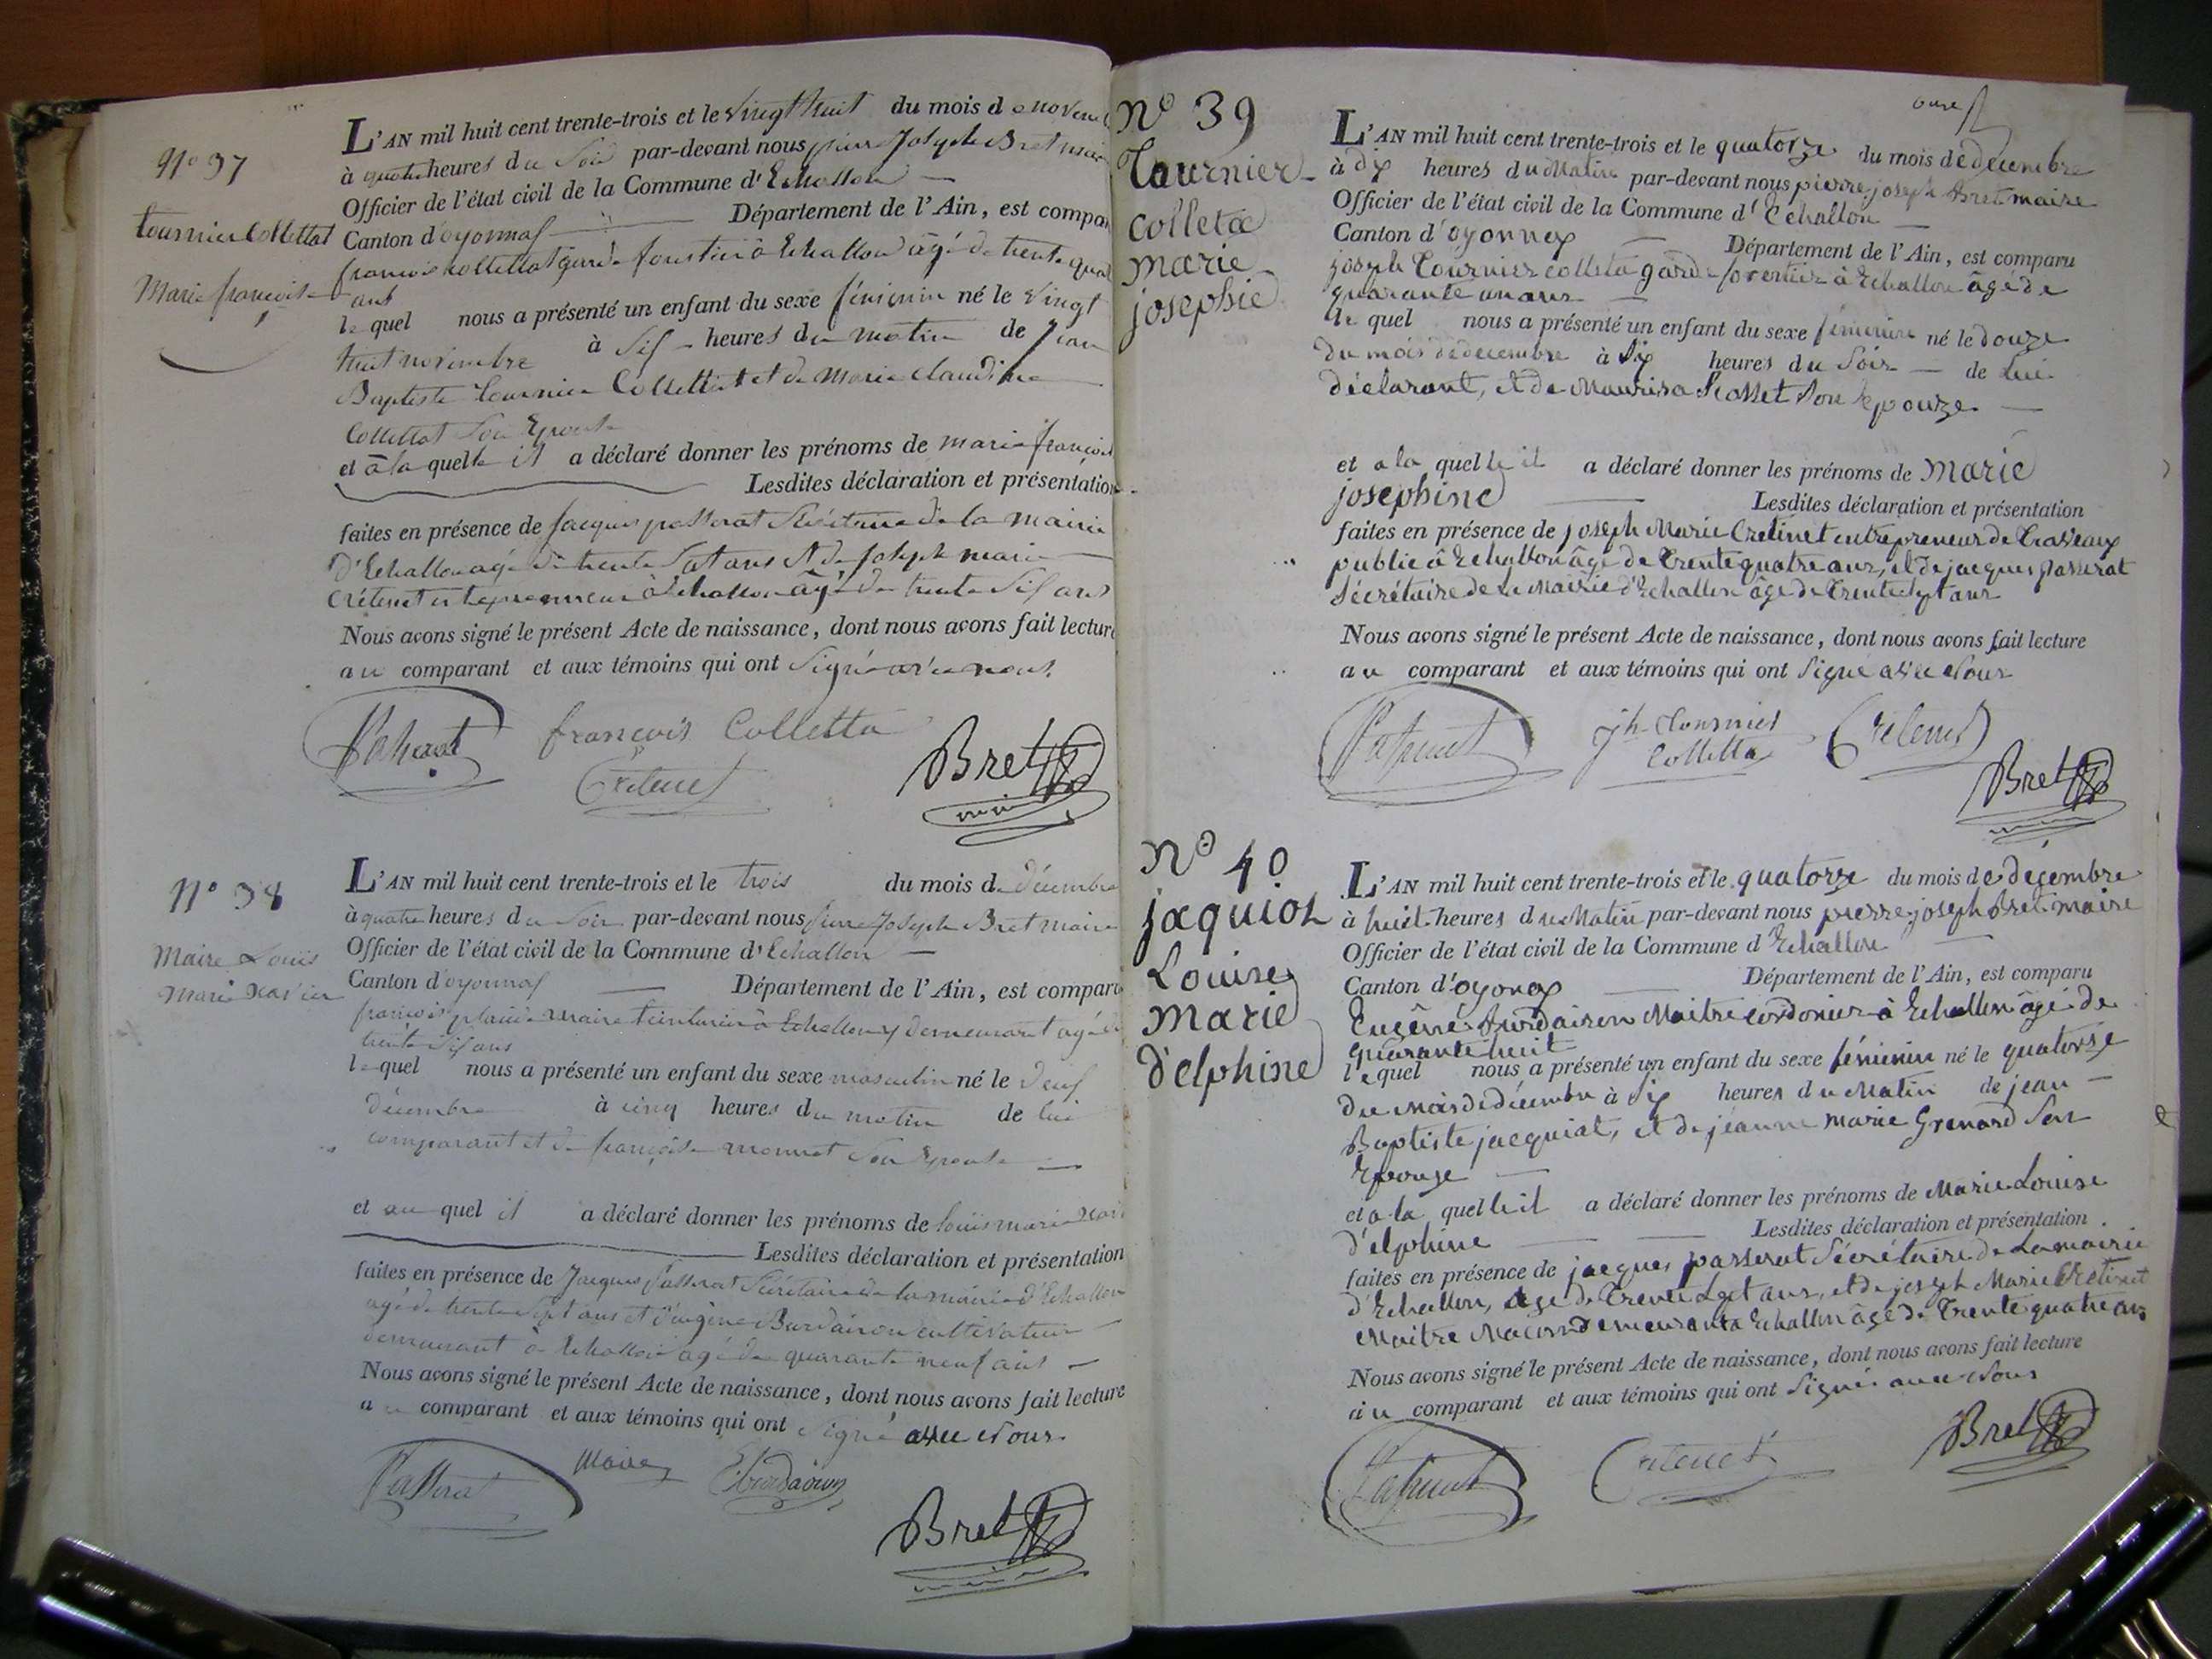 N° 37
tournier Collettat
Marie françoise
L'AN mil huit cent trente-trois et le vingt huit du mois de novem
à quatre heures du soir par-devant nous pierre Joseph Bret maire
Officier de l'état civil de la Commune d'Echallon
Canton d'oyonnas Département de l'Ain, est compar
françois collettat garde forestier à Echallon âgé de trente quat
ans
lequel nous a présenté un enfant du sexe féminin né le vingt
huit novembre à six heures du matin de jean
Baptiste tournier Collettat et de marie claudine
Collettat son Epouse
et à la quelle il a déclaré donner les prénoms de marie françoise
Lesdites déclaration et présentation
faites en présence de Jacques passerat Sécrétaire de la mairie
d'Echallon agé de trente sept ans et de Joseph marie
Crétenet entrepreneur à Echallon âgé de trente six ans
Nous avons signé le présent Acte de naissance, dont nous avons fait lecture
au comparant et aux témoins qui ont signé avec nous.
Passerat françois Colletta
Crétenet Bret
N° 38
Maire Louis
Marie xavier
L'AN mil huit cent trente-trois et le trois du mois de décembre
à quatre heures du soir par-devant nous pierre Joseph Bret maire
Officier de l'état civil de la Commune d'Echallon
Canton d'oyonnas Département de l'Ain, est comparu
françois placide maire teinturier à Echallon y demeurant agé de
trente six ans
lequel nous a présenté un enfant du sexe masculin né le deux
décembre à cinq heures du matin de lui
comparant et de françoise monnet son Epouse
et au quel il a déclaré donner les prénoms de louis marie xavi
Lesdites déclaration et présentation
faites en présence de Jacques Passerat Sécrétaire de la mairie d'Echallon
agé de trente sept ans et d'eugène Burdairon cultivateur
demeurant à Echallon agé de quarante neuf ans
Nous avons signé le présent Acte de naissance, dont nous avons fait lecture
au comparant et aux témoins qui ont signé avec Nous.
Passerat Maire Eburdairon
Bret
N° 39
Tournier
colleta
marie
josephie
L'AN mil huit cent trente-trois et le quatorze du mois de decembre
à dix heures du Matin par-devant nous pierre joseph Bret maire
Officier de l'état civil de la Commune d'Echallon
Canton d'oyonnax Département de l'Ain, est comparu
joseph Tournier colleta garde forestier à Echallon âgé de
quarante un ans
lequel nous a présenté un enfant du sexe féminin né le douze
du mois de decembre à six heures du Soir de Lui
déclarant, et de Son Epouze
et a la quelle il a déclaré donner les prénoms de Marie
josephine Lesdites déclaration et présentation
faites en présence de joseph Marie Cretinet entrepreneur de Traveaux
public à Echallon âgé de Trente quatre ans, et de jacques passerat
Sécrétaire de la Mairie d'Echallon âgé de Trente sept ans
Nous avons signé le présent Acte de naissance, dont nous avons fait lecture
au comparant et aux témoins qui ont Signé avec Nous
Passerat jh Tournier Crétenet
Colletta
Bret
N° 40
jaquiot
Louise
Marie
d'elphine
L'AN mil huit cent trente-trois et le quatorze du mois de décembre
à huit heures du Matin par-devant nous pierre joseph Bret maire
Officier de l'état civil de la Commune d'Echallon
Canton d'oyonax Département de l'Ain, est comparu
Eugêne Burdairon Maitre cordonier à Echallon âgé de
quarante huit
lequel nous a présenté un enfant du sexe féminin né le quatorse
du mois de décembre à six heures du Matin de jean
Baptiste jacquiat, et de jeanne marie Grenard Son
Epouze
et a la quelle il a déclaré donner les prénoms de Marie Louise
d'elphine Lesdites déclaration et présentation
faites en présence de jacques passerat Sécrétaire de La mairie
d'Echallon, âgé de Trente sept ans, et de joseph Marie Cretinet
Maitre Maçon demeurant a Echallon âgé de Trente quatre ans
Nous avons signé le présent Acte de naissance, dont nous avons fait lecture
au comparant et aux témoins qui ont Signé avec Nous
Passerat Crétenet Bret